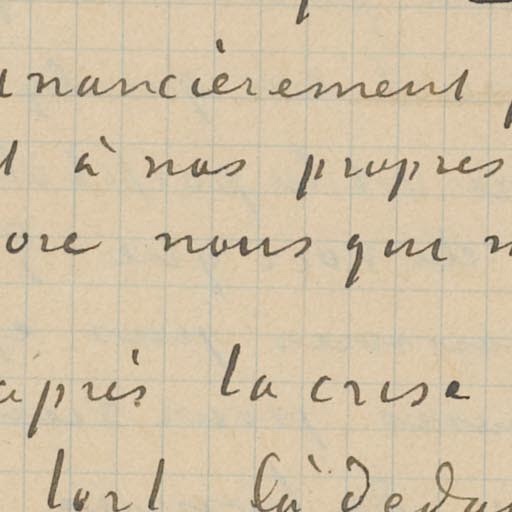 inancièrement
à nos propres
ore nous qui
après la crise
tort là deda